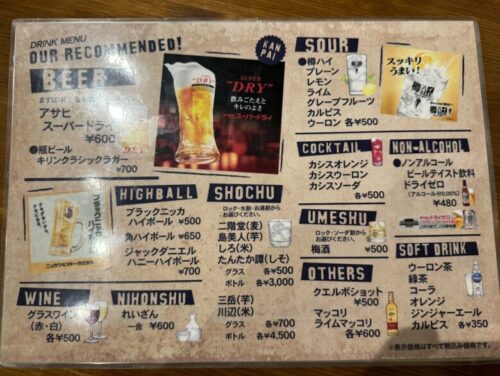 DRINK MENU
OUR RECOMMENDED!
BEER
アサヒ
スーパードライ
¥600
●瓶ビール
キリンクラシックラガー
¥700
SUPER
"DRY"
飲みごたえと
キレのよさ
アサヒスーパードライ
KAN
PAI
SOUR
●樽ハイ
プレーン
レモン
ライム
グレープフルーツ
カルピス
ウーロン 各¥500
スッキリ
うまい!
COCKTAIL
カシスオレンジ
カシスウーロン
カシスソーダ
各¥500
NON-ALCOHOL
●ノンアルコール
ビールテイスト飲料
ドライゼロ
(アルコール分0.00%)
¥480
HIGHBALL
ブラックニッカ
ハイボール ¥500
角ハイボール ¥650
ジャックダニエル
ハニーハイボール
¥700
SHOCHU
ロック・水割・お湯割から
お選びください。
二階堂(麦)
島美人(芋)
しろ(米)
たんたか譚(しそ)
グラス 各¥500
ボトル 各¥3,000
三岳(芋)
川辺(米)
グラス 各¥700
ボトル 各¥4,500
UMESHU
ロック・ソーダ割から
お選びください。
梅酒 ¥500
OTHERS
クエルボショット
¥500
マッコリ
ライムマッコリ
各¥600
SOFT DRINK
ウーロン茶
緑茶
コーラ
オレンジ
ジンジャーエール
カルピス 各¥350
WINE
グラスワイン
(赤・白)
各¥500
NIHONSHU
れいざん
一合 ¥600
※表示価格はすべて税込み価格です。